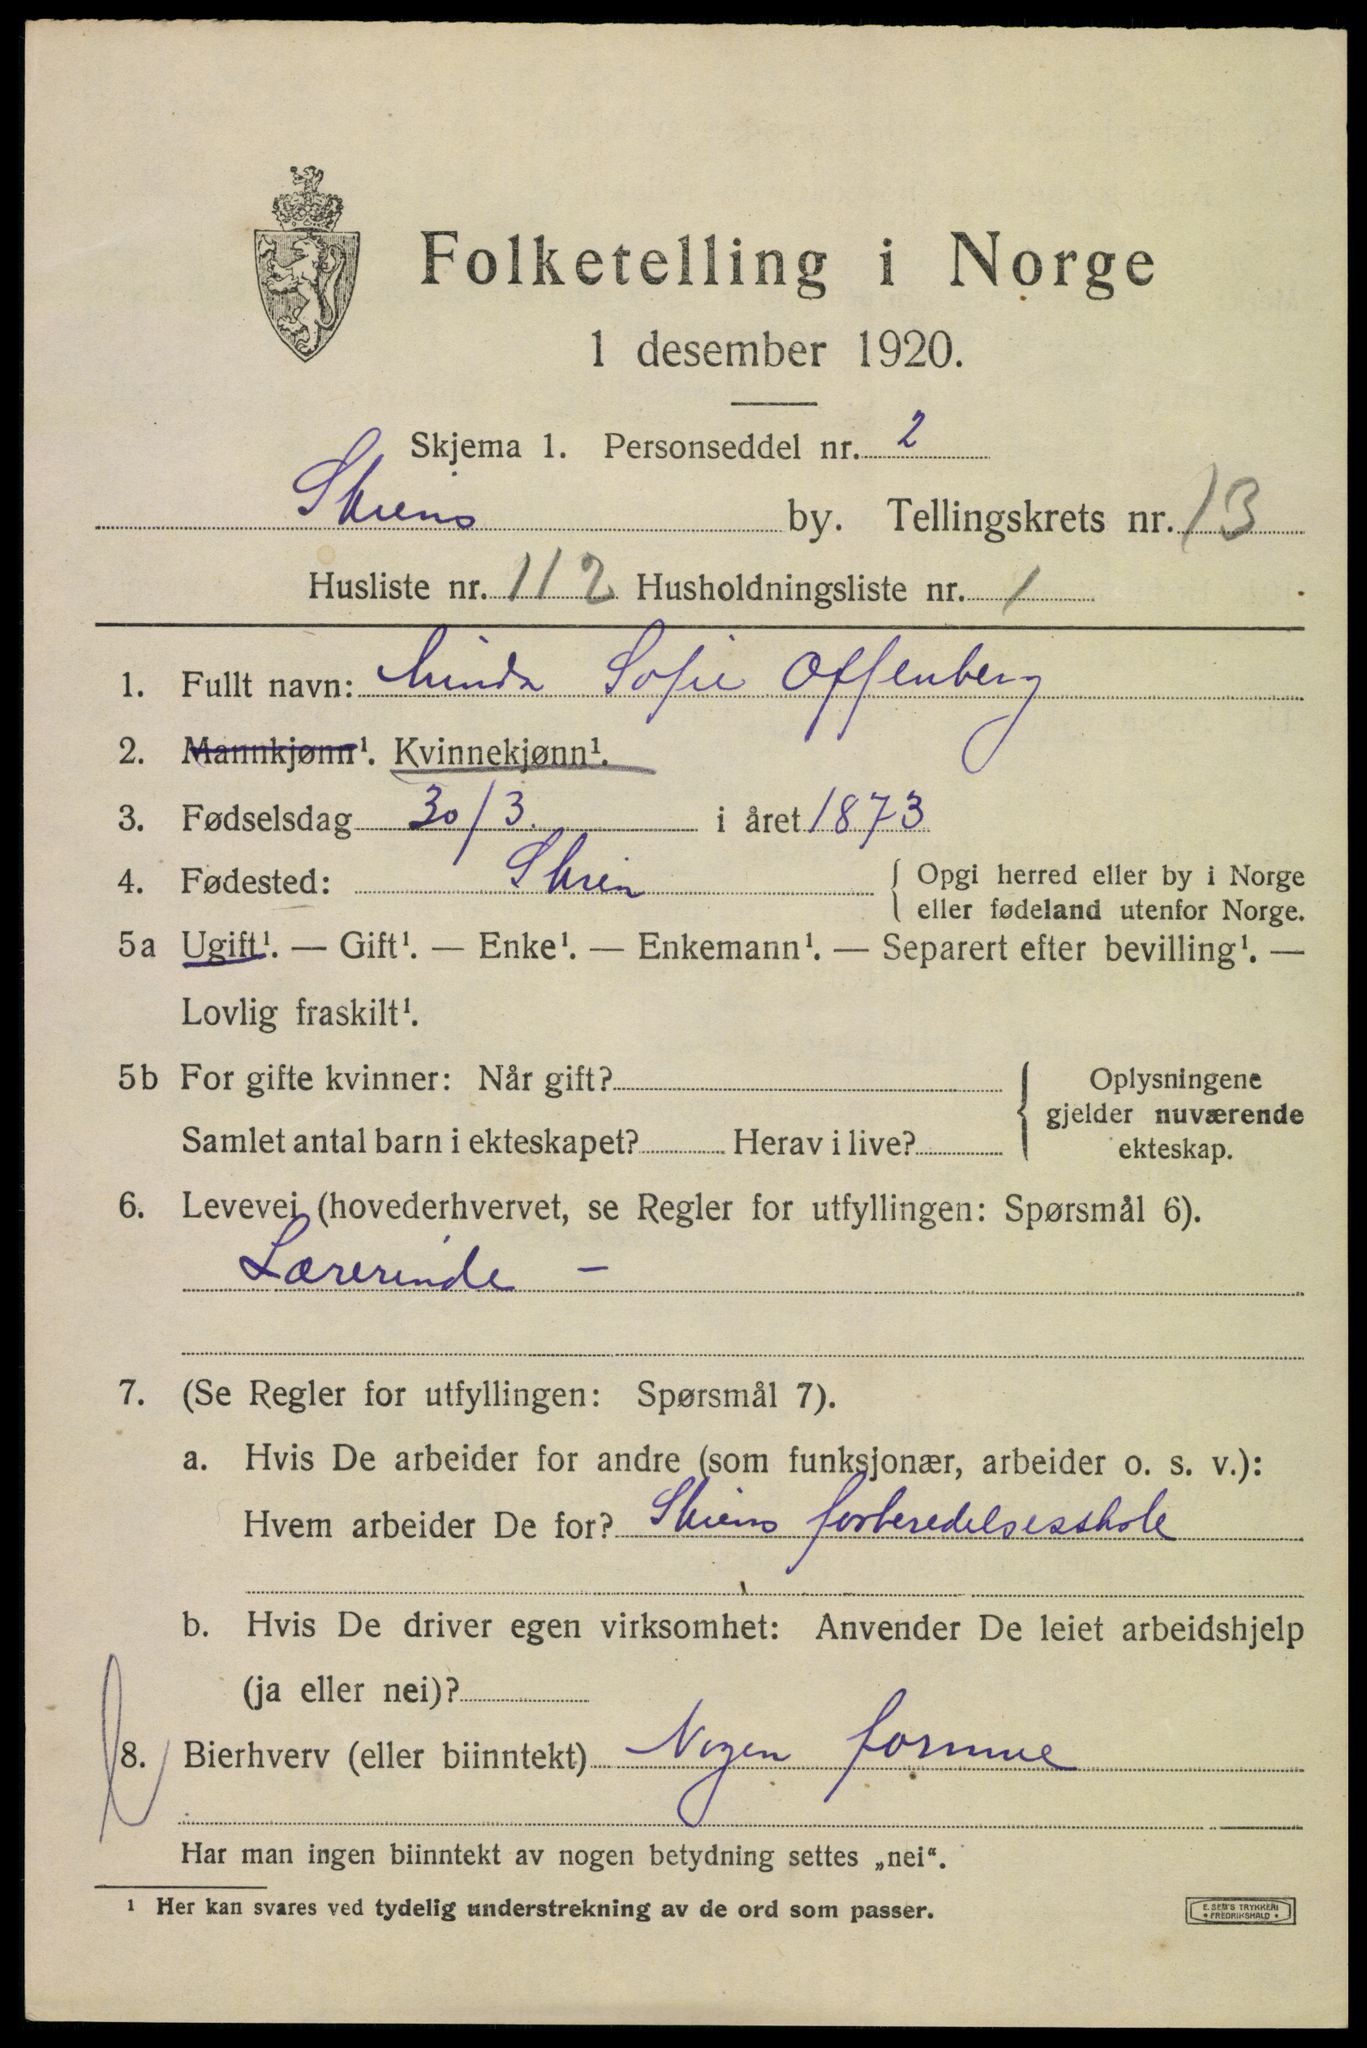 Folketelling i Norge
1 desember 1920.
Skjema 1. Personseddel nr. 2
Skiens by. Tellingskrets nr. 13
Husliste nr. 112 Husholdningsliste nr. 1
1. Fullt navn: Minda Sofie Offenberg
2. Mannkjønn¹. Kvinnekjønn¹.
3. Fødselsdag 30/3. i året 1873
4. Fødested: Skien { Opgi herred eller by i Norge
eller fødeland utenfor Norge.
5a Ugift¹. — Gift¹. — Enke¹. — Enkemann¹. — Separert efter bevilling¹. —
Lovlig fraskilt¹.
5b For gifte kvinner: Når gift? { Oplysningene
gjelder nuværende
Samlet antal barn i ekteskapet? Herav i live? ekteskap.
6. Levevei (hovederhvervet, se Regler for utfyllingen: Spørsmål 6).
Lærerinde –
7. (Se Regler for utfyllingen: Spørsmål 7).
a. Hvis De arbeider for andre (som funksjonær, arbeider o. s. v.):
Hvem arbeider De for? Skiens forberedelsesskole
b. Hvis De driver egen virksomhet: Anvender De leiet arbeidshjelp
(ja eller nei)?
8. Bierhverv (eller biinntekt) Nogen formue
Har man ingen biinntekt av nogen betydning settes „nei“.
¹ Her kan svares ved tydelig understrekning av de ord som passer.
E. SEM'S TRYKKERI
• FREDRIKSHALD •